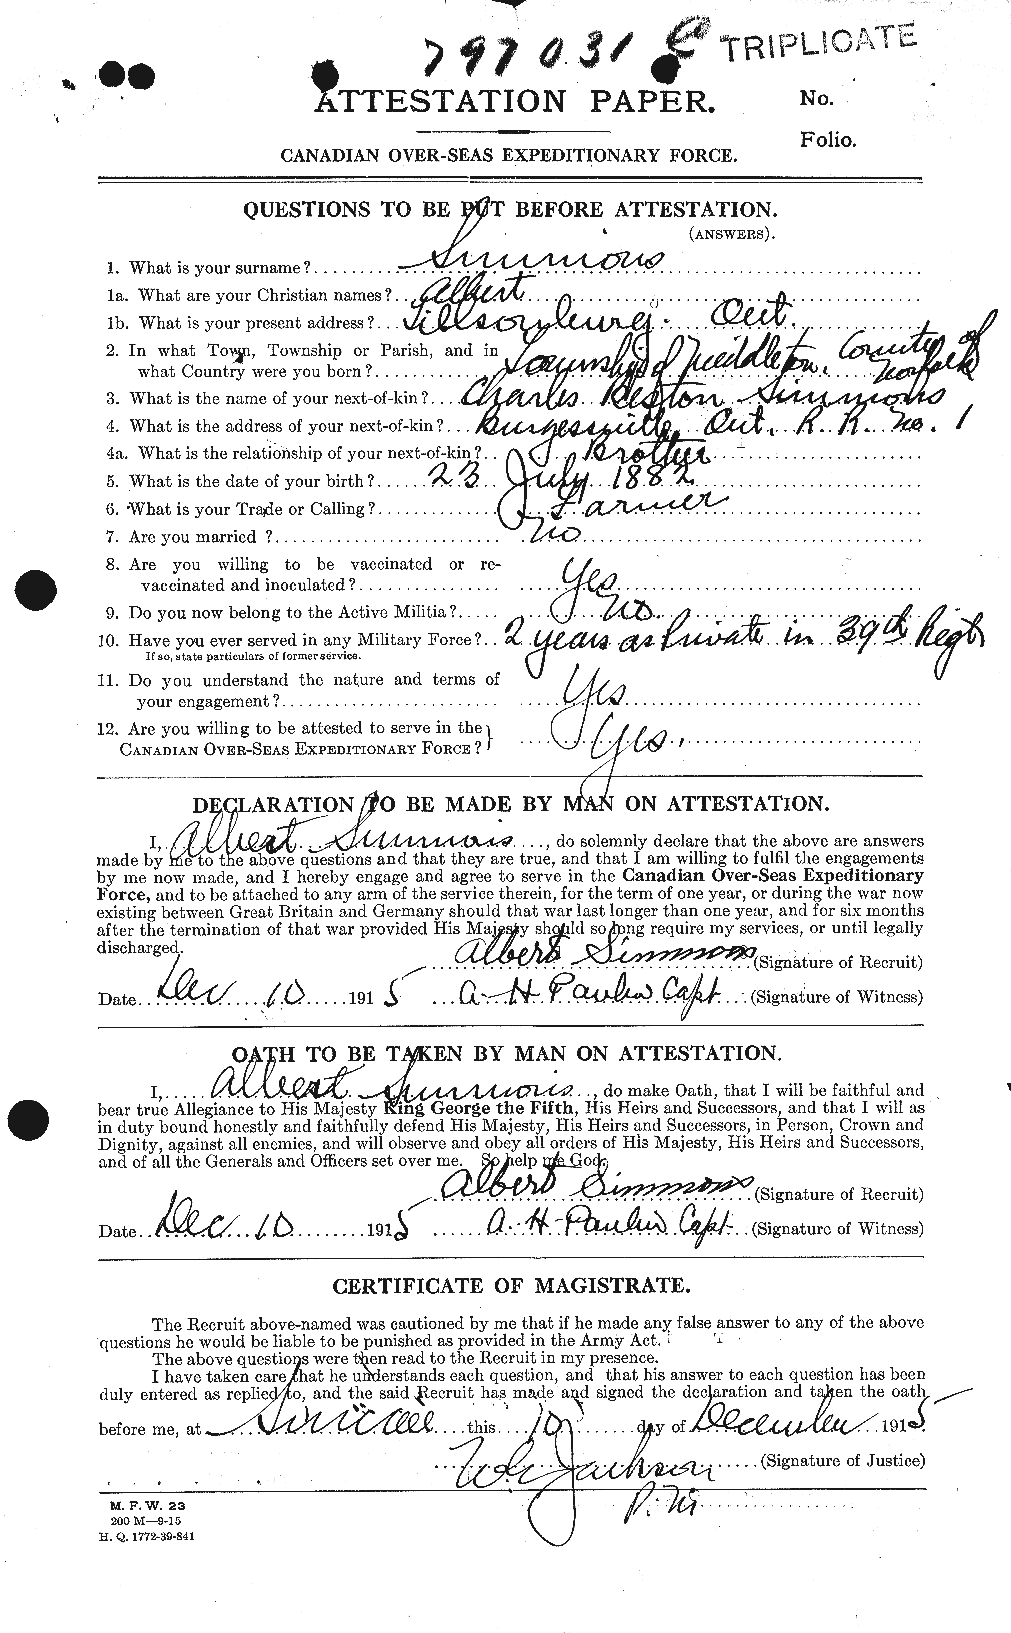 797031 TRIPLICATE
ATTESTATION PAPER.
No.
Folio.
CANADIAN OVER-SEAS EXPEDITIONARY FORCE.
QUESTIONS TO BE PUT BEFORE ATTESTATION.
(ANSWERS).
1. What is your surname? Simmons
1a. What are your Christian names? Albert
1b. What is your present address? Tillsonburg. Ont.
2. In what Town, Township or Parish, and in
what Country were you born? Township of Middleton, County of Norfolk
3. What is the name of your next-of-kin? Charles Simmons
4. What is the address of your next-of-kin? Burgessville Ont. R. R. No. 1
4a. What is the relationship of your next-of-kin? Brother
5. What is the date of your birth? 23 July 1882
6. What is your Trade or Calling? Farmer
7. Are you married ? No
8. Are you willing to be vaccinated or re-
vaccinated and inoculated? Yes
9. Do you now belong to the Active Militia? No
10. Have you ever served in any Military Force? 2 years as Private in 39th Regt
If so, state particulars of former service.
11. Do you understand the nature and terms of
your engagement? Yes
12. Are you willing to be attested to serve in the
CANADIAN OVER-SEAS EXPEDITIONARY FORCE? Yes.
DECLARATION TO BE MADE BY MAN ON ATTESTATION.
I, Albert Simmons, do solemnly declare that the above are answers
made by me to the above questions and that they are true, and that I am willing to fulfil the engagements
by me now made, and I hereby engage and agree to serve in the Canadian Over-Seas Expeditionary
Force, and to be attached to any arm of the service therein, for the term of one year, or during the war now
existing between Great Britain and Germany should that war last longer than one year, and for six months
after the termination of that war provided His Majesty should so long require my services, or until legally
discharged.
Albert Simmons (Signature of Recruit)
Date Dec 10 1915 A. H. Paulin Capt. (Signature of Witness)
OATH TO BE TAKEN BY MAN ON ATTESTATION.
I, Albert Simmons, do make Oath, that I will be faithful and
bear true Allegiance to His Majesty King George the Fifth, His Heirs and Successors, and that I will as
in duty bound honestly and faithfully defend His Majesty, His Heirs and Successors, in Person, Crown and
Dignity, against all enemies, and will observe and obey all orders of His Majesty, His Heirs and Successors,
and of all the Generals and Officers set over me. So help me God.
Albert Simmons (Signature of Recruit)
Date Dec 10 1915 A. H. Paulin Capt. (Signature of Witness)
CERTIFICATE OF MAGISTRATE.
The Recruit above-named was cautioned by me that if he made any false answer to any of the above
questions he would be liable to be punished as provided in the Army Act.
The above questions were then read to the Recruit in my presence.
I have taken care that he understands each question, and that his answer to each question has been
duly entered as replied to, and the said Recruit has made and signed the declaration and taken the oath
before me, at Simcoe this 10 day of December 1915
Jackson (Signature of Justice)
P. M.
M. F. W. 23
200 M—9-15
H. Q. 1772-39-841